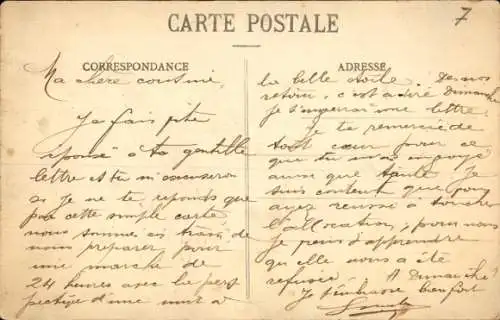 CARTE POSTALE
7
CORRESPONDANCE
ADRESSE
Ma chère cousine
Je fais vite
réponse à ta gentille
lettre et tu m'excuseras
si je ne te réponds que
par cette simple carte
nous sommes en train de
nous préparer pour
une marche de
24 heures avec la pers
pective d'une nuit à
la belle étoile. De nos
retour, c'est à dire Dimanche
je t'enverrai une lettre.
Je te remercie de
tout cœur pour ce
que tu m'as envoyé
ainsi que tante. Je
suis content que vous
ayez réussi à toucher
l'allocation, pour nous
je viens d'apprendre
qu'elle nous a été
refusée. A Dimanche
Je t'embrasse bien fort